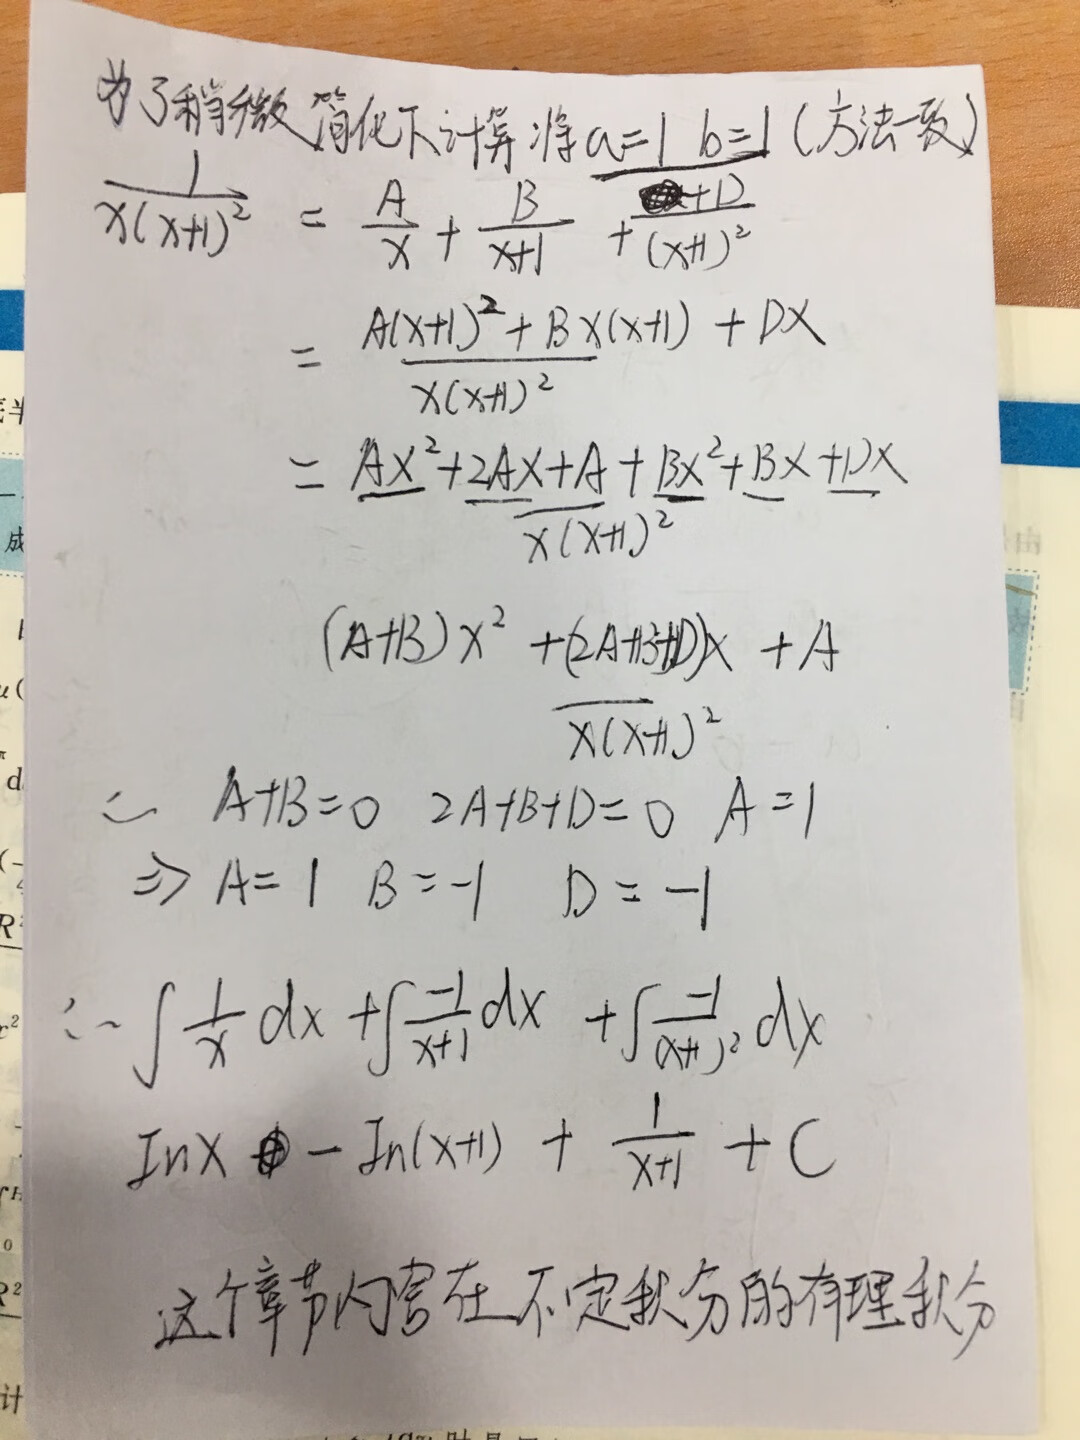 为了稍微简化下计算 将a=1 b=1(方法一致)
1/(x(x+1)²) = A/x + B/(x+1) + +D/(x+1)²
= (A(x+1)²+Bx(x+1) + Dx)/(x(x+1)²)
= (Ax²+2Ax+A+Bx²+Bx+Dx)/(x(x+1)²)
((A+B)x²+(2A+B+D)x+A)/(x(x+1)²)
∴ A+B=0 2A+B+D=0 A=1
⇒ A=1 B=-1 D=-1
∴ ∫1/x dx +∫-1/(x+1) dx +∫-1/(x+1)² dx
Inx - In(x+1) + 1/(x+1) + C
这个章节内容在不定积分的有理积分
成
u(
d
R²
R²
计